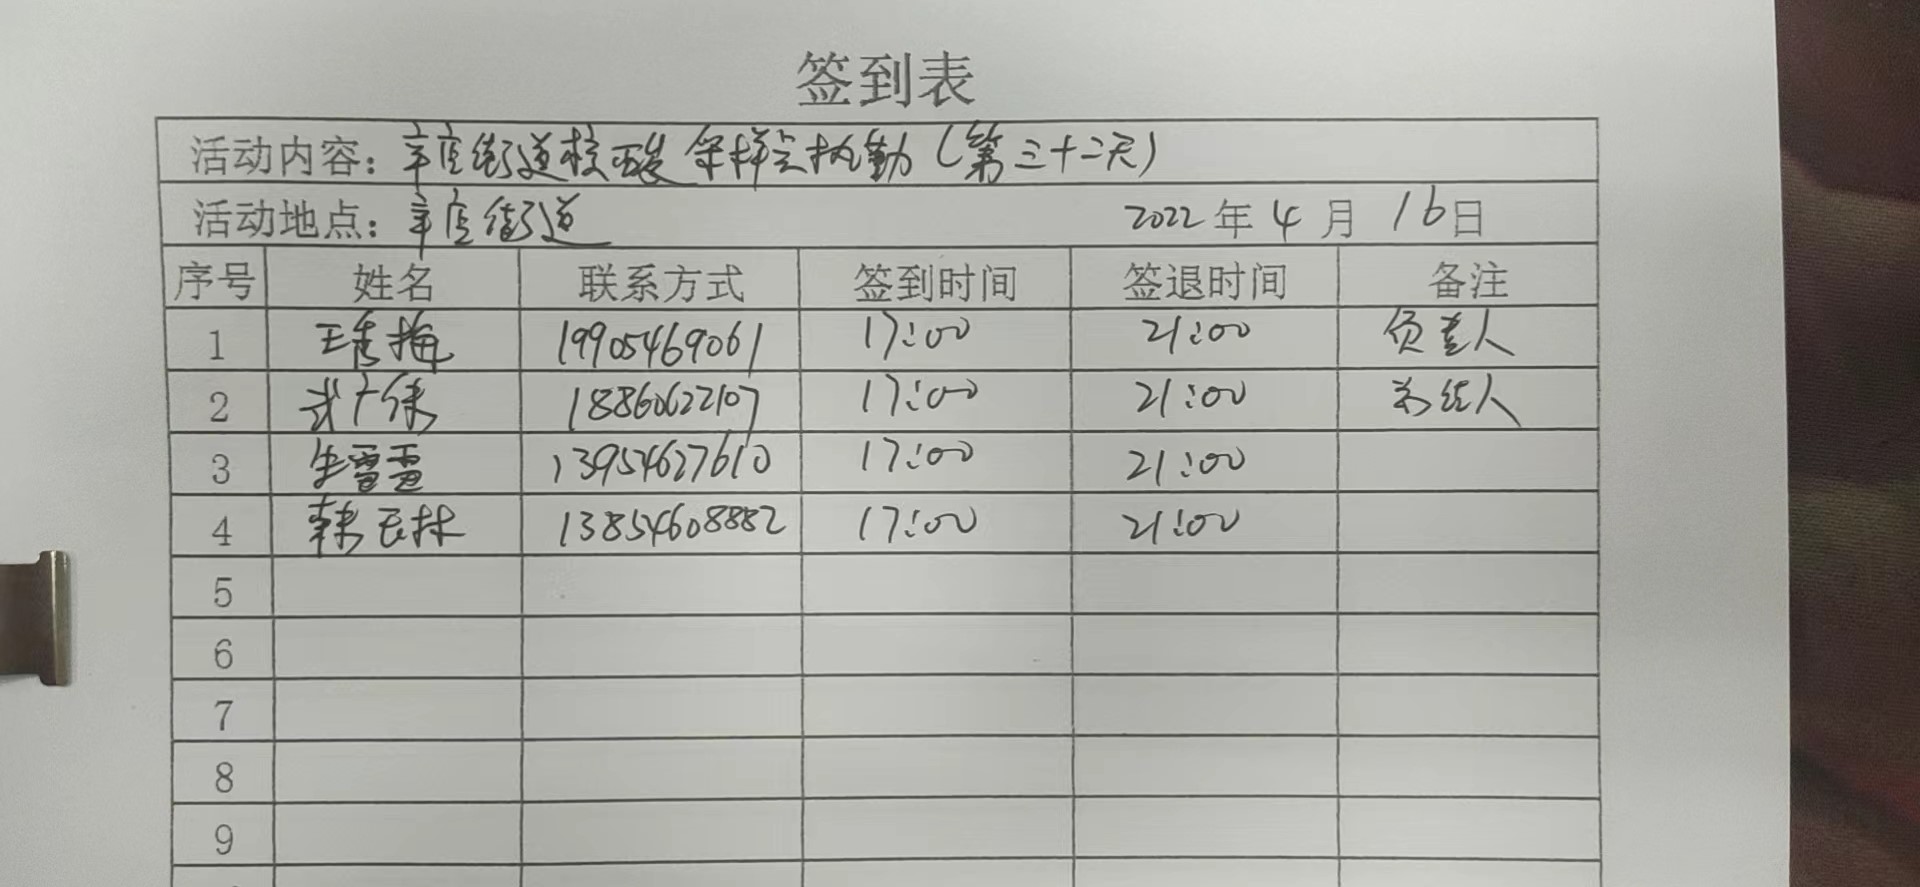 签到表
活动内容：辛店街道核酸采样点执勤（第三十二天）
活动地点：辛店街道 2022年4月16日
序号 姓名 联系方式 签到时间 签退时间 备注
1 王秀梅 19905469061 17:00 21:00 负责人
2 武广保 18860622107 17:00 21:00 总结人
3 生雷雷 13954627610 17:00 21:00
4 韩玉林 13854608882 17:00 21:00
5
6
7
8
9